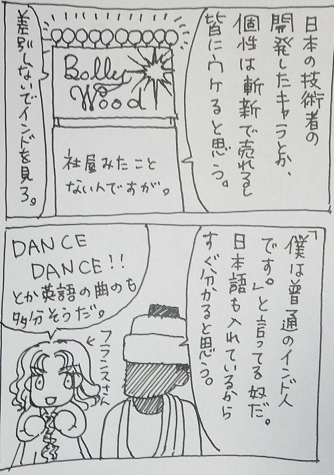 日本の技術者の
開発したキャラとか、
個性は斬新で売れるし
皆にウケると思う。
Bolly
Wood
社屋みたこと
ないんですが。
差別しないでインドを見ろ。
「僕は普通のインド人
です。」と言ってる奴だ。
日本語も入れているから
すぐ分かると思う。
DANCE
DANCE!!
とか英語の曲のも
多分そうだ。
フランスさん